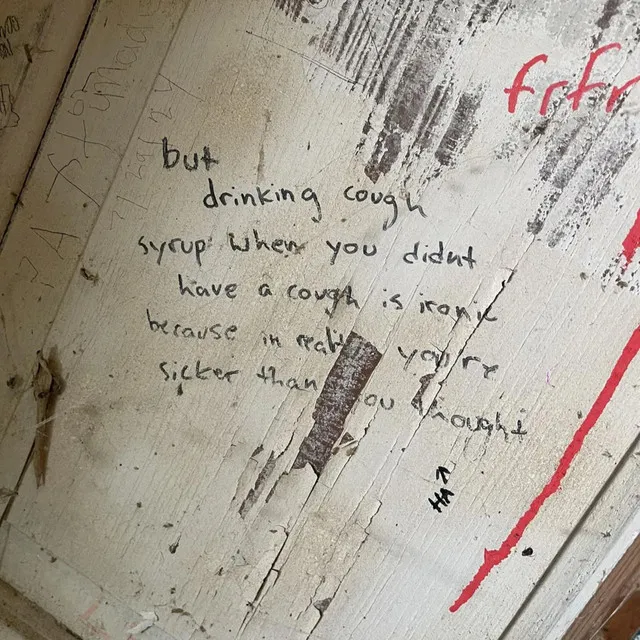 frfr
but
drinking cough
syrup when you didnt
have a cough is ironic
because in reality you're
sicker than you thought
HA